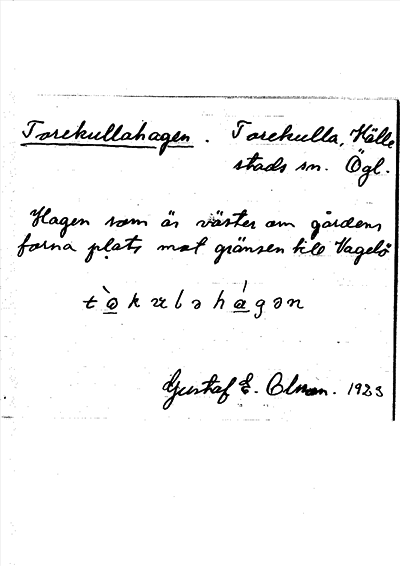 Torekullahagen. Torekulla, Hälle
stads sn. Ögl.
Hagen som är väster om gårdens
forna plats mot gränsen till Vagelö
Gustaf E. 1923